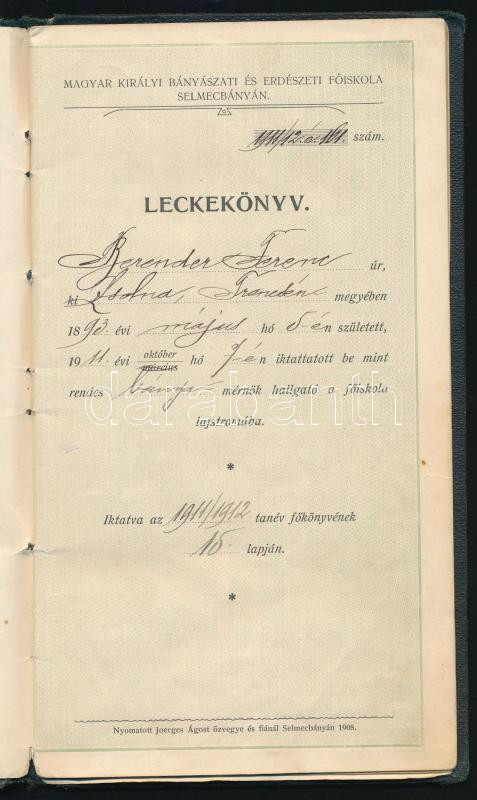 MAGYAR KIRÁLYI BÁNYÁSZATI ÉS ERDÉSZETI FŐISKOLA
SELMECBÁNYÁN.
1911/12. é. 161. szám.
LECKEKÖNYV.
Berender Ferenc úr,
ki Zsolna, Trencsén megyében
1893. évi május hó 5-én született,
1911. évi október hó 7-én iktattatott be mint
március
rendes bánya- mérnök hallgató a főiskola
lajstromába.
*
Iktatva az 1911/1912. tanév főkönyvének
15. lapján.
*
Nyomatott Joerges Ágost özvegye és fiánál Selmecbányán 1908.
darabanth